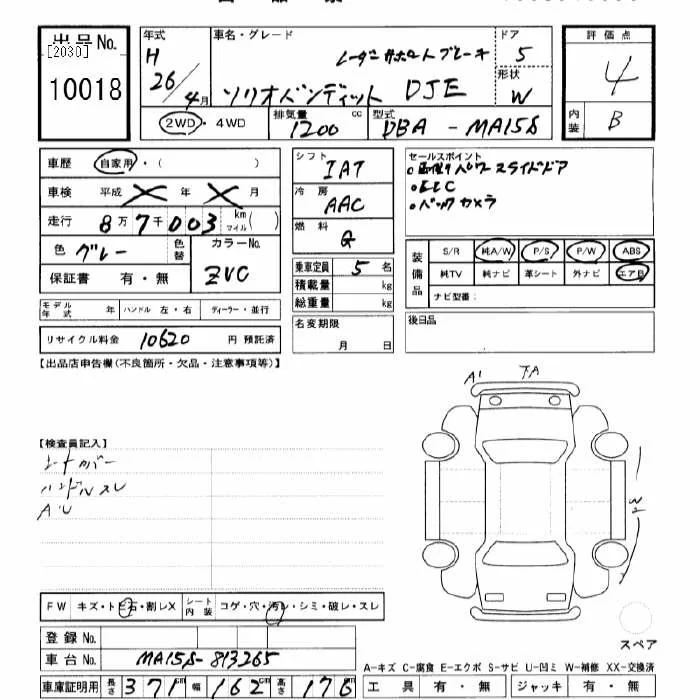 出品No. [2030] 10018
年式 H 26/4月
車名・グレード レーダーサポートブレーキ
ソリオバンディット DJE
ドア 5
形状 W
評価点 4
内装 B
2WD・4WD 排気量 1200 cc 型式 DBA-MA15S
車歴 自家用・( )
車検 平成 X 年 X 月
走行 8万7千003 km マイル( )
色 グレー 色替 カラーNo. ZVC
保証書 有・無
シフト IAT
冷房 AAC
燃料 G
乗車定員 5名
積載量 kg
総重量 kg
セールスポイント
パワースライドドア
ETC
バックカメラ
装備品 S/R 純A/W P/S P/W ABS
純TV 純ナビ 革シート 外ナビ エアB
ナビ型番:
モデル年式 年 ハンドル 左・右 ディーラー・並行
リサイクル料金 10620 円 預託済
名変期限 月 日
後日品
【出品店申告欄(不良箇所・欠品・注意事項等)】
A1
【検査員記入】
シートカバー
ハンドルスレ
AU
FW キズ・トビ石・割レX シート内装 コゲ・穴・汚レ・シミ・破レ・スレ
登録No.
車台No. MA15S-813265
車庫証明用 長さ 371 cm 幅 162 cm 高さ 176 cm
スペア
A-キズ C-腐食 E-エクボ S-サビ U-凹ミ W-補修 XX-交換済
工具 有・無 ジャッキ 有・無